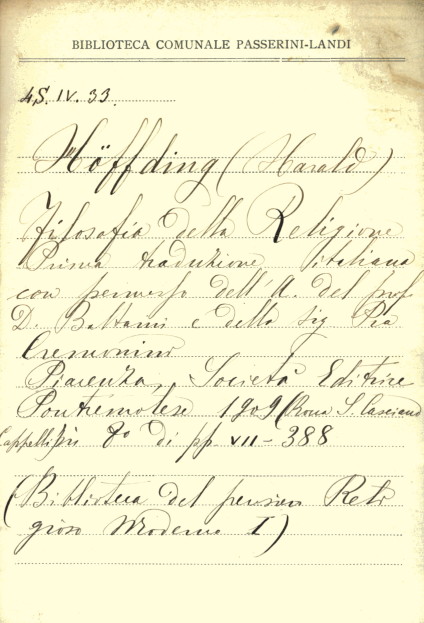 BIBLIOTECA COMUNALE PASSERINI-LANDI
4S. IV. 33.
Höffding (Harald)
Filosofia della Religione
Prima traduzione italiana
con permesso dell'A. del prof
D. Battaini e della Sig Pia
Cremonini
Piacenza, Società Editrice
Pontremolese 1909 (Rocca S. Casciano
Cappelli) in 8º di pp VII-388
(Biblioteca del pensiero Reli
gioso Moderno I)